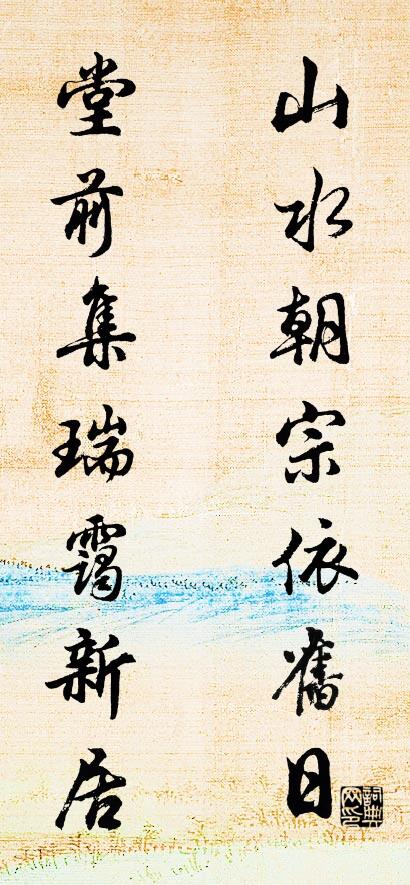 山水朝宗依舊日
堂前集瑞靄新居